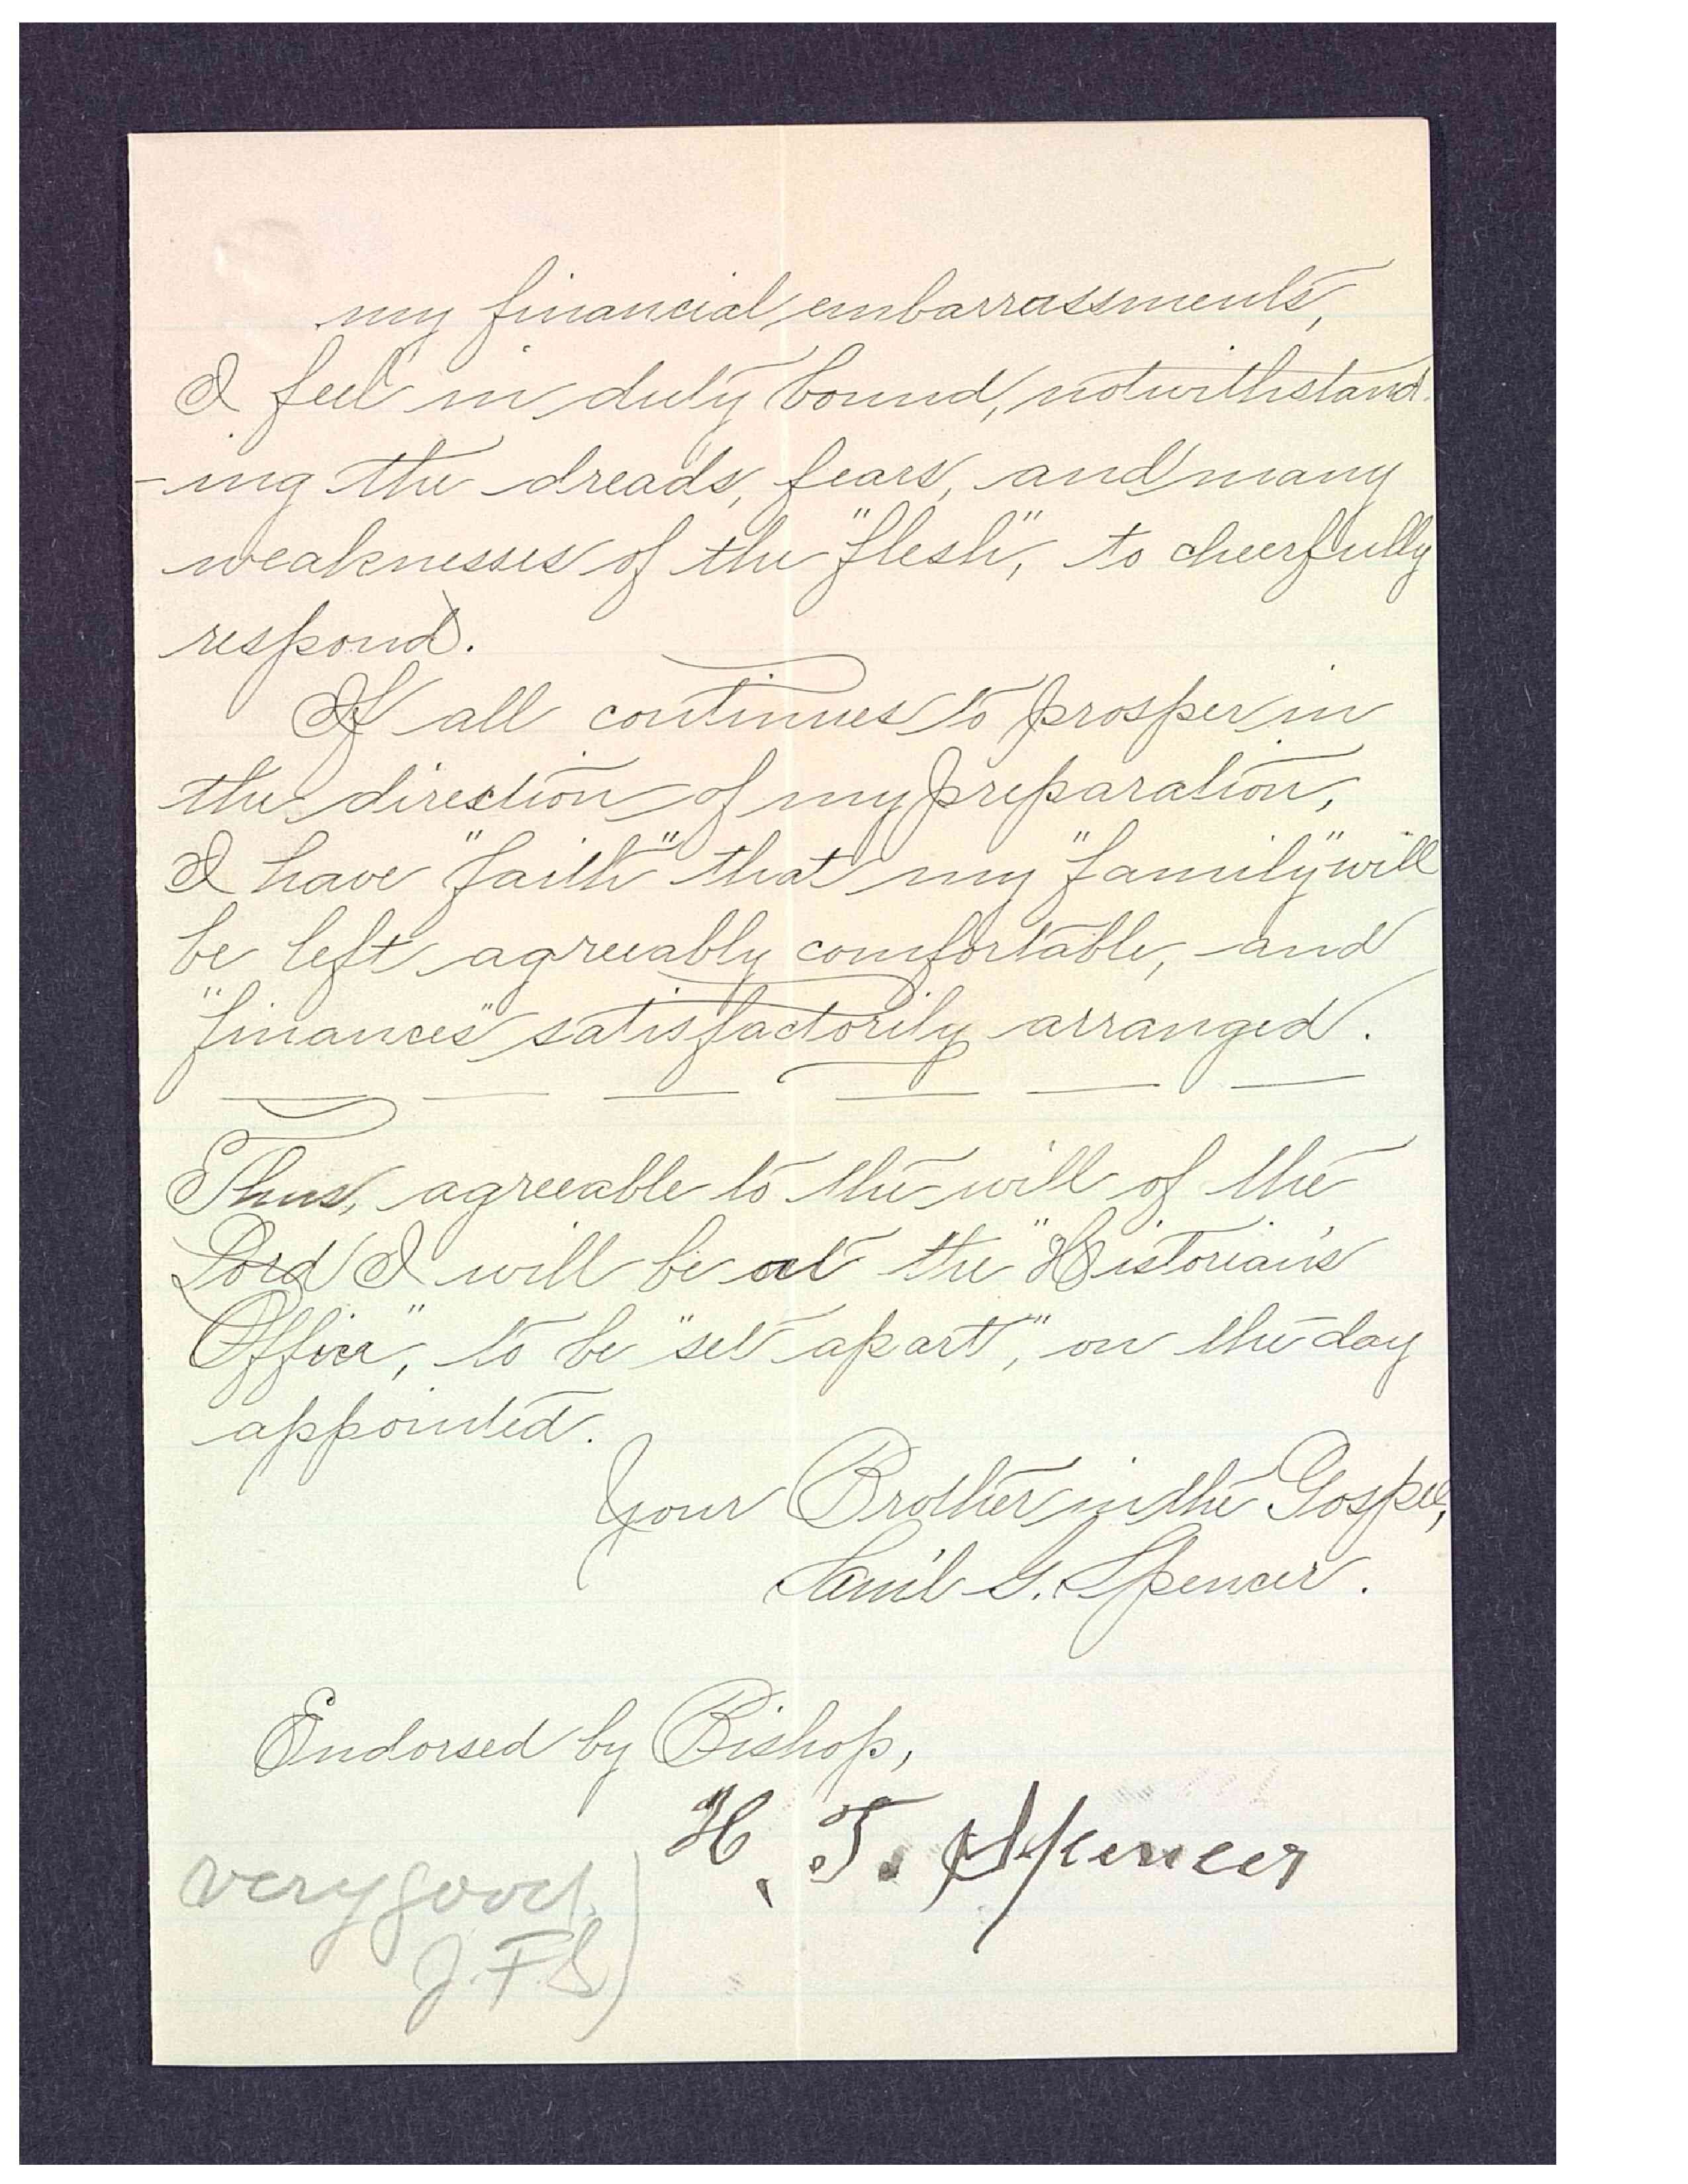 my financial embarrassments,
I feel in duty bound, notwithstand-
-ing the dreads, fears, and many
weaknesses of the "flesh," to cheerfully
respond.
If all continues to prosper in
the direction of my preparation,
I have "faith" that my "family" will
be left agreeably comfortable, and
"finances" satisfactorily arranged.
Thus, agreeable to the will of the
Lord I will be at the "Historian's
Office", to be "set apart," on the day
appointed.
Your Brother in the Gospel,
Sam'l G. Spencer.
Endorsed by Bishop,
H. T. Spencer
very good.
J. F. S.